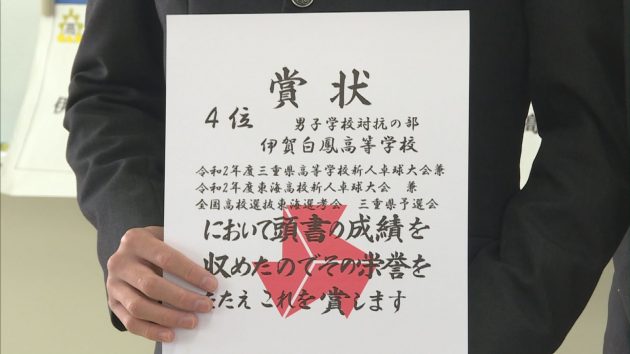 賞状
4位 男子学校対抗の部
伊賀白鳳高等学校
令和2年度三重県高等学校新人卓球大会兼
令和2年度東海高校新人卓球大会 兼
全国高校選抜東海選考会 三重県予選会
において頭書の成績を
収めたのでその栄誉を
たたえ これを賞します